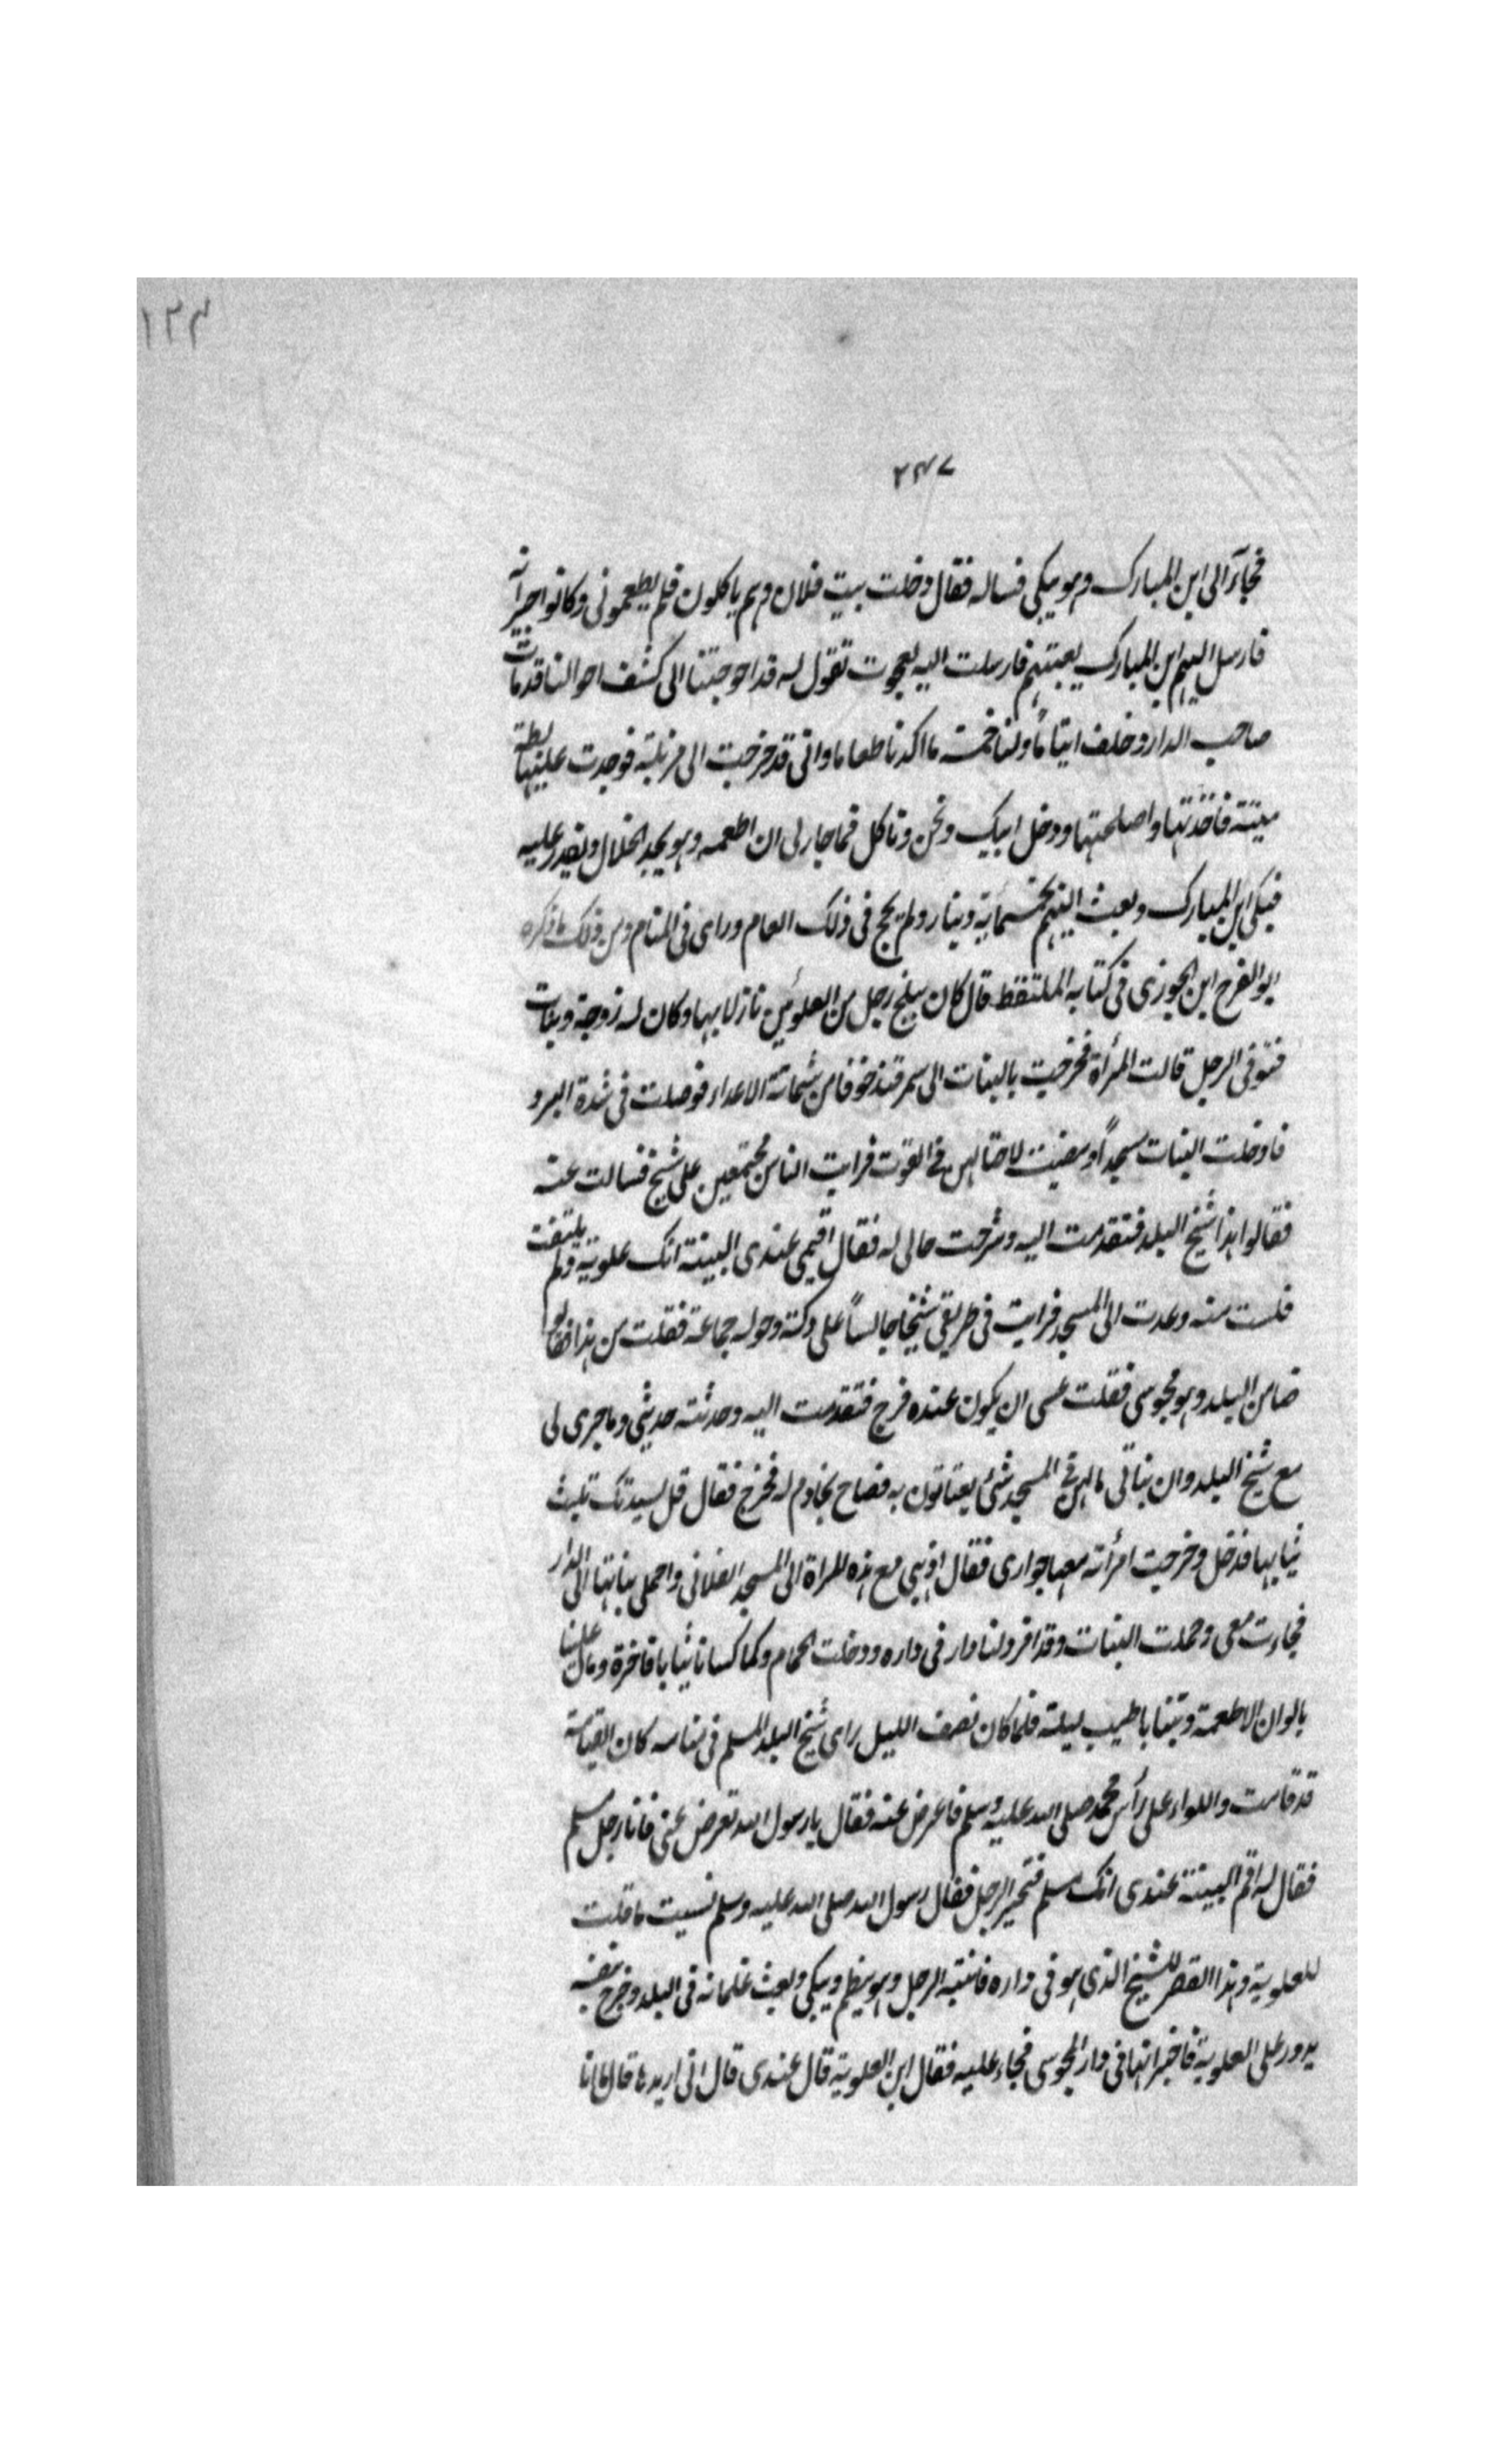 ١٢٤
٢٤٧
فجاء الى ابن المبارك وهو يبكى فساله فقال دخلت بيت فلان وهم ياكلون فلم يطعمونى وكانوا جيرانه
فارسل اليهم ابن المبارك يعتبهم فارسلت اليه عجوت تقول له قد احوجتنا الى كشف احوالنا قد مات
صاحب الدار وخلف ايتاماً ولنا خمسة ما اكدنا طعاما وانى قد خرجت الى مزبلة فوجدت عليها بطة
ميتة فاخذتها واصلحتها ودخل ابنك ونحن وناكل فما جاز لى ان اطعمه وهو يجد الحلال ويقدر عليه
فبكى ابن المبارك وبعث اليهم بخمسماية دينار ولم يحج فى ذلك العام وراى فى المنام ومن ذلك ما ذكره
ابو الفرح ابن الجوزى فى كتابه الملتقط قال كان ببلخ رجل من العلوئين نازلا بها وكان له زوجة وبنات
فتوفى الرجل قالت المرأة فخرجت بالبنات الى سمرقند خوفا من شماتة الاعداء فوصلت فى شدة البرد
فادخلت البنات مسجداً ومضيت لاحتال لهن فى القوت فرايت الناس مجتمعين على شيخ فسالت عنه
فقالوا هذا شيخ البلد فتقدمت اليه وشرحت حالى له فقال اقيمى عندى البينة انك علوية ولم يلتفت
فلست منه وعدت الى المسجد فرايت فى طريقى شيخا جالساً على دكة وحوله جماعة فقلت من هذا فقالوا
ضامن البلد وهو مجوسى فقلت عسى ان يكون عنده فرج فتقدمت اليه وحدثته حديثى وما جرى لى
مع شيخ البلد وان بناتى ما لهن فى المسجد شئ يقتاتون به فصاح بخادم له فخرج فقال قل لسيدتك تلبث
ثيابها فدخل وخرجت امرأته معها جوارى فقال اذهبى مع هذه المراة الى المسجد الفلانى واحملى بناتها الى الدار
فجاءت معى وحملت البنات وقد افرد لنا دار فى داره ودخلت الحمام وكما كسانا ثيابا فاخرة ومال علينا
بالوان الاطعمة وبتنا باطيب ليلة فلما كان نصف الليل راى شيخ البلد المسلم فى منامه كان القيامة
قد قامت واللواء على رأس محمد صلى الله عليه وسلم فاعرض عنه فقال يا رسول الله تعرض عنى فانا رجل مسلم
فقال له اقم البينة عندى انك مسلم فتحير الرجل فقال رسول الله صلى الله عليه وسلم نسيت ما قلت
للعلوية وهذا القصر للشيخ الذى هو فى داره فانتبه الرجل وهو يلطم ويبكى وبعث غلمانه فى البلد وخرج بنفسه
يدور على العلوية فاخبر انها فى دار المجوسى فجاء عليه فقال اين العلوية قال عندى قال انى اريدها قال مانا